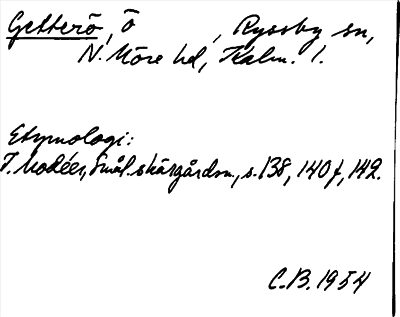 Getterö, Ö , Ryssby sn,
N. Möre hd, Kalm. l.
Etymologi:
I. Modéer, Smål. skärgårdsn., s. 138, 140 f, 142.
C.B. 1954